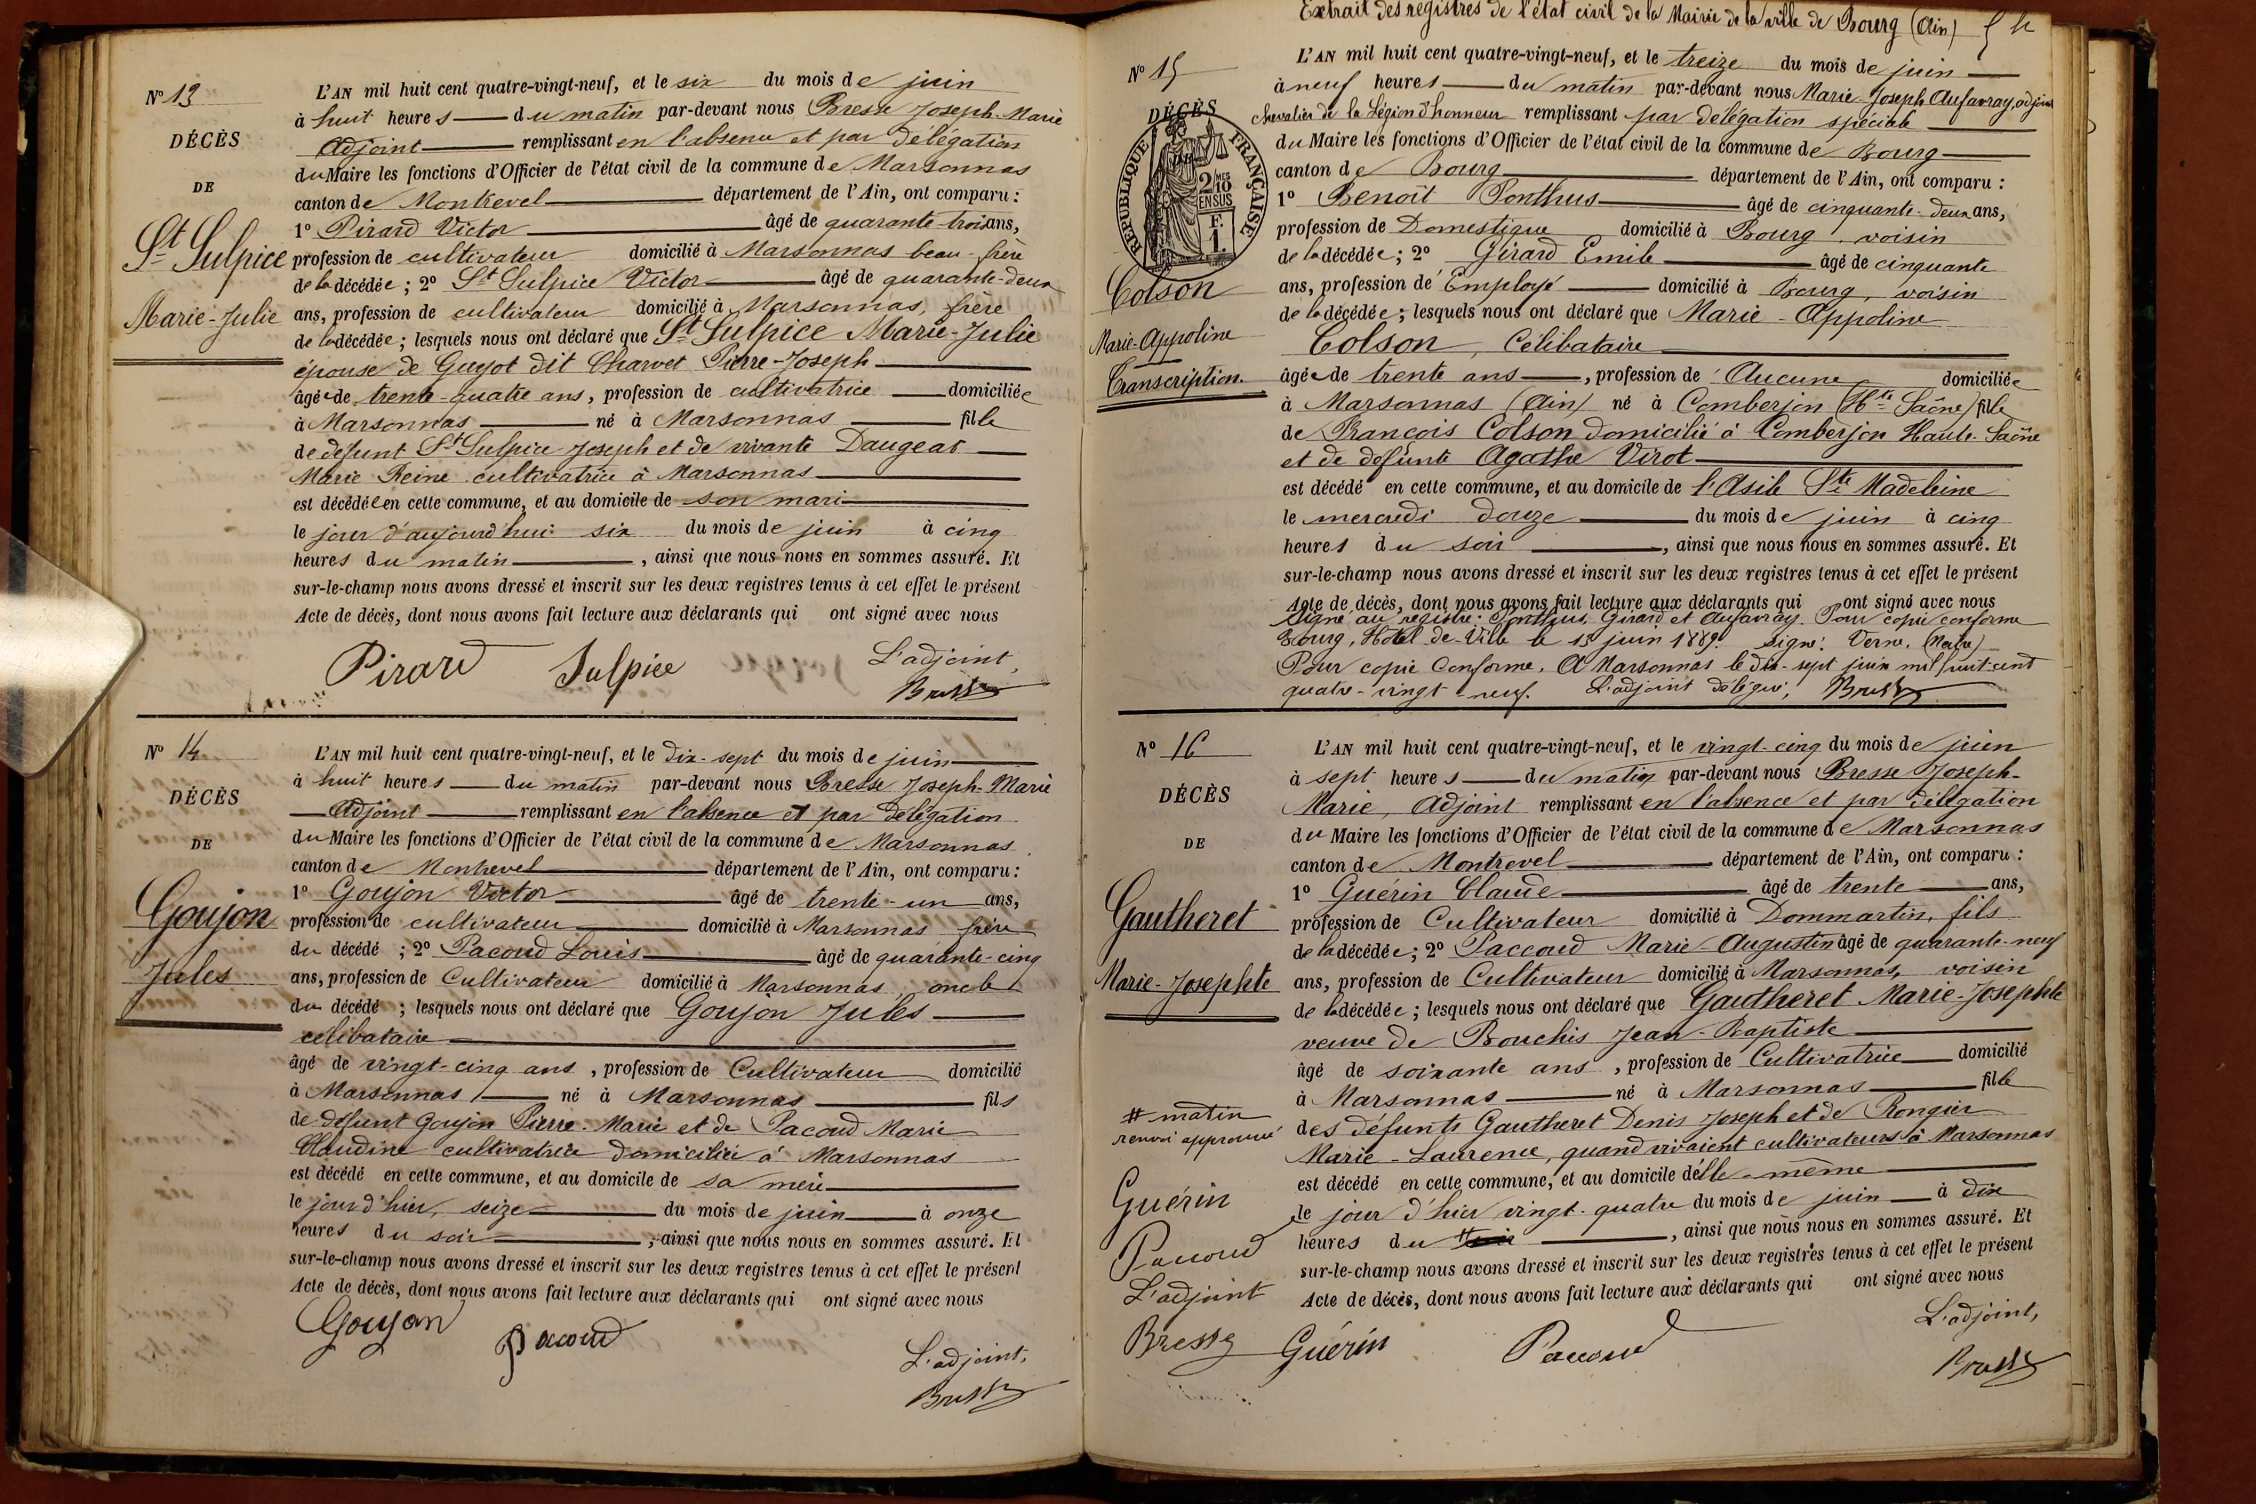 N° 13
DÉCÈS
DE
St Sulpice
Marie-Julie
L'AN mil huit cent quatre-vingt-neuf, et le six du mois de juin
à huit heures du matin par-devant nous Bresse Joseph-Marie
Adjoint remplissant en l'absence et par délégation
du Maire les fonctions d'Officier de l'état civil de la commune de Marsonnas
canton de Montrevel département de l'Ain, ont comparu :
1° Pirard Victor âgé de quarante-trois ans,
profession de cultivateur domicilié à Marsonnas beau-frère
de la décédée ; 2° St Sulpice Victor âgé de quarante-deux
ans, profession de cultivateur domicilié à Marsonnas, frère
de la décédée ; lesquels nous ont déclaré que St Sulpice Marie-Julie
épouse de Guyot dit Charvet Pierre-Joseph
âgée de trente-quatre ans, profession de cultivatrice domiciliée
à Marsonnas né à Marsonnas fille
de défunt St Sulpice Joseph et de vivante Daugeat
Marie Reine cultivatrice à Marsonnas
est décédée en cette commune, et au domicile de son mari
le jour d'aujourd'hui six du mois de juin à cinq
heures du matin, ainsi que nous nous en sommes assuré. Et
sur-le-champ nous avons dressé et inscrit sur les deux registres tenus à cet effet le présent
Acte de décès, dont nous avons fait lecture aux déclarants qui ont signé avec nous
Pirard Sulpice L'adjoint,
Bresse
N° 14
DÉCÈS
DE
Goujon
Jules
L'AN mil huit cent quatre-vingt-neuf, et le dix-sept du mois de juin
à huit heures du matin par-devant nous Bresse Joseph-Marie
Adjoint remplissant en l'absence et par délégation
du Maire les fonctions d'Officier de l'état civil de la commune de Marsonnas
canton de Montrevel département de l'Ain, ont comparu :
1° Goujon Victor âgé de trente-un ans,
profession de cultivateur domicilié à Marsonnas frère
du décédé ; 2° Pacoud Louis âgé de quarante-cinq
ans, profession de Cultivateur domicilié à Marsonnas, oncle
du décédé ; lesquels nous ont déclaré que Goujon Jules
célibataire
âgé de vingt-cinq ans, profession de Cultivateur domicilié
à Marsonnas né à Marsonnas fils
de défunt Goujon Pierre-Marie et de Pacoud Marie
Claudine cultivatrice domiciliée à Marsonnas
est décédé en cette commune, et au domicile de sa mère
le jour d'hier, seize du mois de juin à onze
heures du soir, ainsi que nous nous en sommes assuré. Et
sur-le-champ nous avons dressé et inscrit sur les deux registres tenus à cet effet le présent
Acte de décès, dont nous avons fait lecture aux déclarants qui ont signé avec nous
Goujon Pacoud L'adjoint,
Bresse
Extrait des registres de l'état civil de la Mairie de la ville de Bourg (Ain)
N° 15
DÉCÈS
RÉPUBLIQUE FRANÇAISE
2 MES 10
EN SUS
F.
1.
Colson
Marie-Appoline
Transcription.
L'AN mil huit cent quatre-vingt-neuf, et le treize du mois de juin
à neuf heures du matin par-devant nous Marie-Joseph Aufavray, adjoint
chevalier de la Légion d'honneur remplissant par délégation spéciale
du Maire les fonctions d'Officier de l'état civil de la commune de Bourg
canton de Bourg département de l'Ain, ont comparu :
1° Benoît Ponthus âgé de cinquante-deux ans,
profession de Domestique domicilié à Bourg, voisin
de la décédée ; 2° Girard Emile âgé de cinquante
ans, profession d'Employé domicilié à Bourg, voisin
de la décédée ; lesquels nous ont déclaré que Marie-Appoline
Colson, Célibataire
âgée de trente ans, profession de Aucune domiciliée
à Marsonnas (Ain) né à Comberjon (Hte Saône) fille
de François Colson domicilié à Comberjon Haute-Saône
et de défunte Agathe Virot
est décédé en cette commune, et au domicile de l'Asile Ste Madeleine
le mercredi douze du mois de juin à cinq
heures du soir, ainsi que nous nous en sommes assuré. Et
sur-le-champ nous avons dressé et inscrit sur les deux registres tenus à cet effet le présent
Acte de décès, dont nous avons fait lecture aux déclarants qui ont signé avec nous
Signé au registre : Ponthus, Girard et Aufavray. Pour copie conforme
Bourg, Hôtel de Ville le 15 juin 1889. signé : Verne, (Maire)
Pour copie conforme. A Marsonnas le dix-sept juin mil huit-cent
quatre-vingt-neuf. L'adjoint délégué, Bresse
N° 16
DÉCÈS
DE
Gautheret
Marie-Josephte
L'AN mil huit cent quatre-vingt-neuf, et le vingt-cinq du mois de juin
à sept heures du matin par-devant nous Bresse Joseph-
Marie, Adjoint remplissant en l'absence et par délégation
du Maire les fonctions d'Officier de l'état civil de la commune de Marsonnas
canton de Montrevel département de l'Ain, ont comparu :
1° Guérin Claude âgé de trente ans,
profession de Cultivateur domicilié à Dommartin, fils
de la décédée ; 2° Paccoud Marie Augustin âgé de quarante-neuf
ans, profession de Cultivateur domicilié à Marsonnas, voisin
de la décédée ; lesquels nous ont déclaré que Gautheret Marie-Josephte
veuve de Bouchis Jean-Baptiste
âgé de soixante ans, profession de Cultivatrice domicilié
à Marsonnas né à Marsonnas fille
des défunts Gautheret Denis Joseph et de Rongier
Marie-Laurence, quand vivaient cultivateurs à Marsonnas
est décédé en cette commune, et au domicile d'elle-même
le jour d'hier vingt-quatre du mois de juin à dix
heures du #, ainsi que nous nous en sommes assuré. Et
sur-le-champ nous avons dressé et inscrit sur les deux registres tenus à cet effet le présent
Acte de décès, dont nous avons fait lecture aux déclarants qui ont signé avec nous
# matin
renvoi approuvé
Guérin
Paccoud
L'adjoint
Bresse
Guérin Paccoud L'adjoint,
Bresse